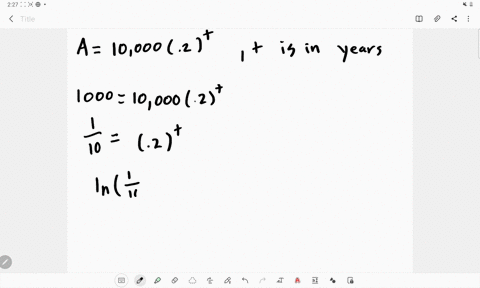 2:27
Title
A = 10,000(.2)^t , t is in years
1000 = 10,000(.2)^t
1/10 = (.2)^t
ln(1/1